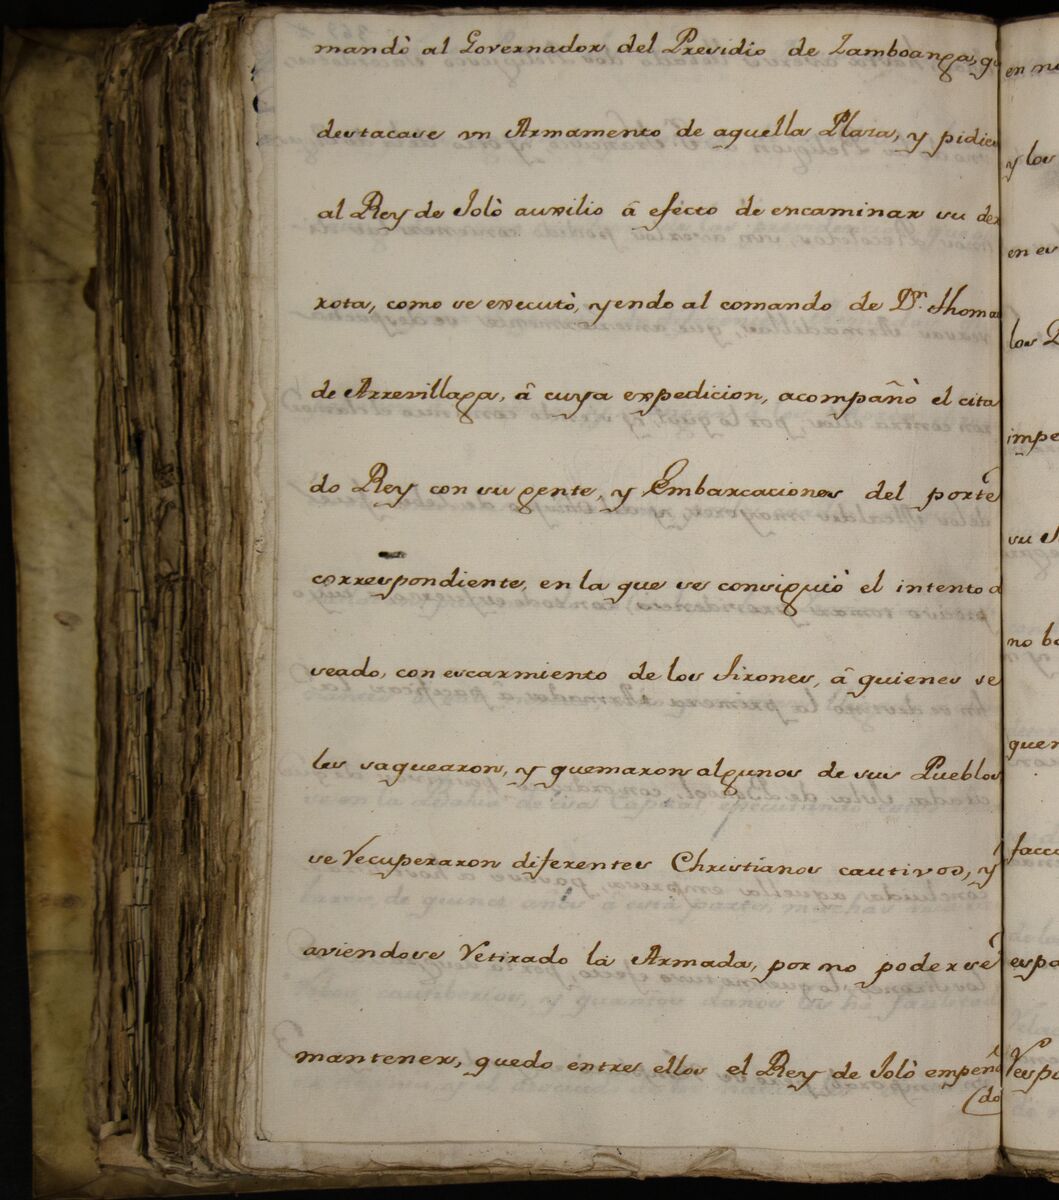 mandò al Governador del Presidio de Zamboanga, q
destacase vn Armamento de aquella Plaza, y pidies
al Rey de Jolò auxilio â efecto de encaminar su der
rota, como se executò, yendo al comando de Dn. Thoma
de Arrevillaga, â cuya expedicion, acompañò el cita
do Rey con su gente, y Embarcaciones del porte
correspondiente, en la que se consiguiò el intento d
seado, con escarmiento de los Tirones, â quienes se
les saquearon, y quemaron algunos de sus Pueblos
se Recuperaron diferentes Christianos cautivos, y
aviendose Retirado la Armada, por no poderse
mantener, quedo entre ellos el Rey de Jolò empeña
(do
en n
y los
en es
los
impe
su
no b
quer
facc
espa
Respi